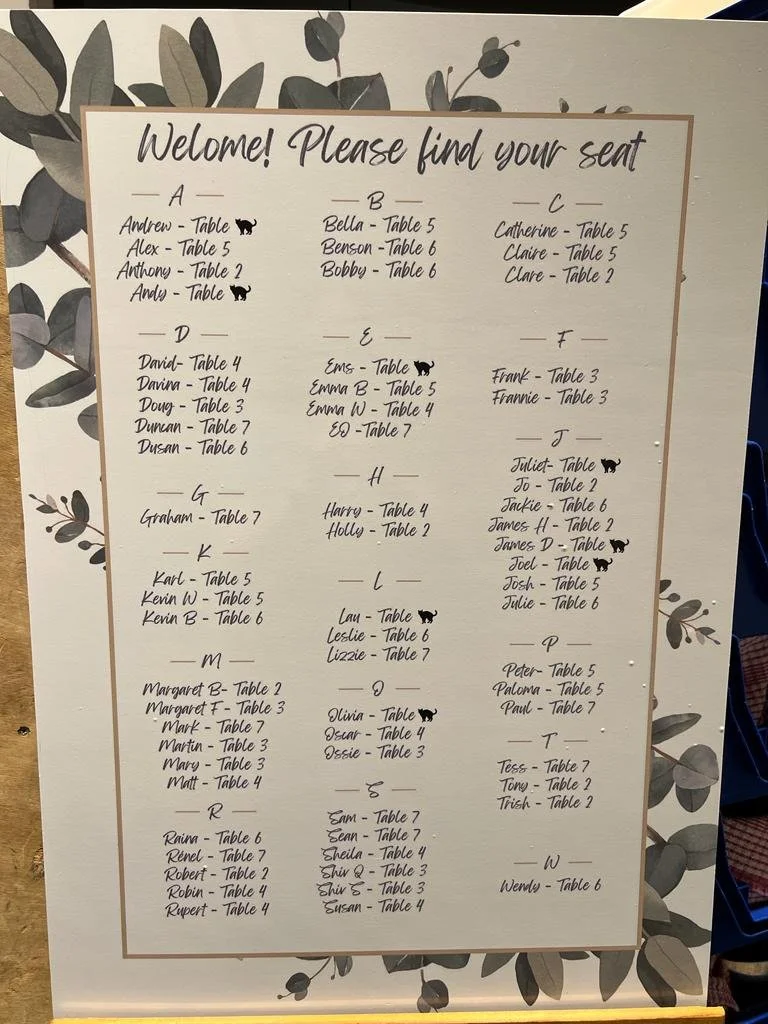 Welome! Please find your seat
A
Andrew - Table
Alex - Table 5
Anthony - Table 2
Andy - Table
B
Bella - Table 5
Benson -Table 6
Bobby - Table 6
C
Catherine - Table 5
Claire - Table 5
Clare - Table 2
D
David- Table 4
Davina - Table 4
Doug - Table 3
Duncan - Table 7
Dusan - Table 6
E
Ems - Table
Emma B - Table 5
Emma W - Table 4
EO -Table 7
F
Frank - Table 3
Frannie - Table 3
G
Graham - Table 7
H
Harry - Table 4
Holly - Table 2
J
Juliet- Table
Jo - Table 2
Jackie - Table 6
James H - Table 2
James D - Table
Joel - Table
Josh - Table 5
Julie - Table 6
K
Karl - Table 5
Kevin W - Table 5
Kevin B - Table 6
L
Lau - Table
Leslie - Table 6
Lizzie - Table 7
M
Margaret B- Table 2
Margaret F - Table 3
Mark - Table 7
Martin - Table 3
Mary - Table 3
Matt - Table 4
O
Olivia - Table
Oscar - Table 4
Ossie - Table 3
P
Peter- Table 5
Paloma - Table 5
Paul - Table 7
R
Raina - Table 6
Rénel - Table 7
Robert - Table 2
Robin - Table 4
Rupert - Table 4
S
Sam - Table 7
Sean - Table 7
Sheila - Table 4
Shiv Q - Table 3
Shiv S - Table 3
Susan - Table 4
T
Tess - Table 7
Tony - Table 2
Trish - Table 2
W
Wendy - Table 6